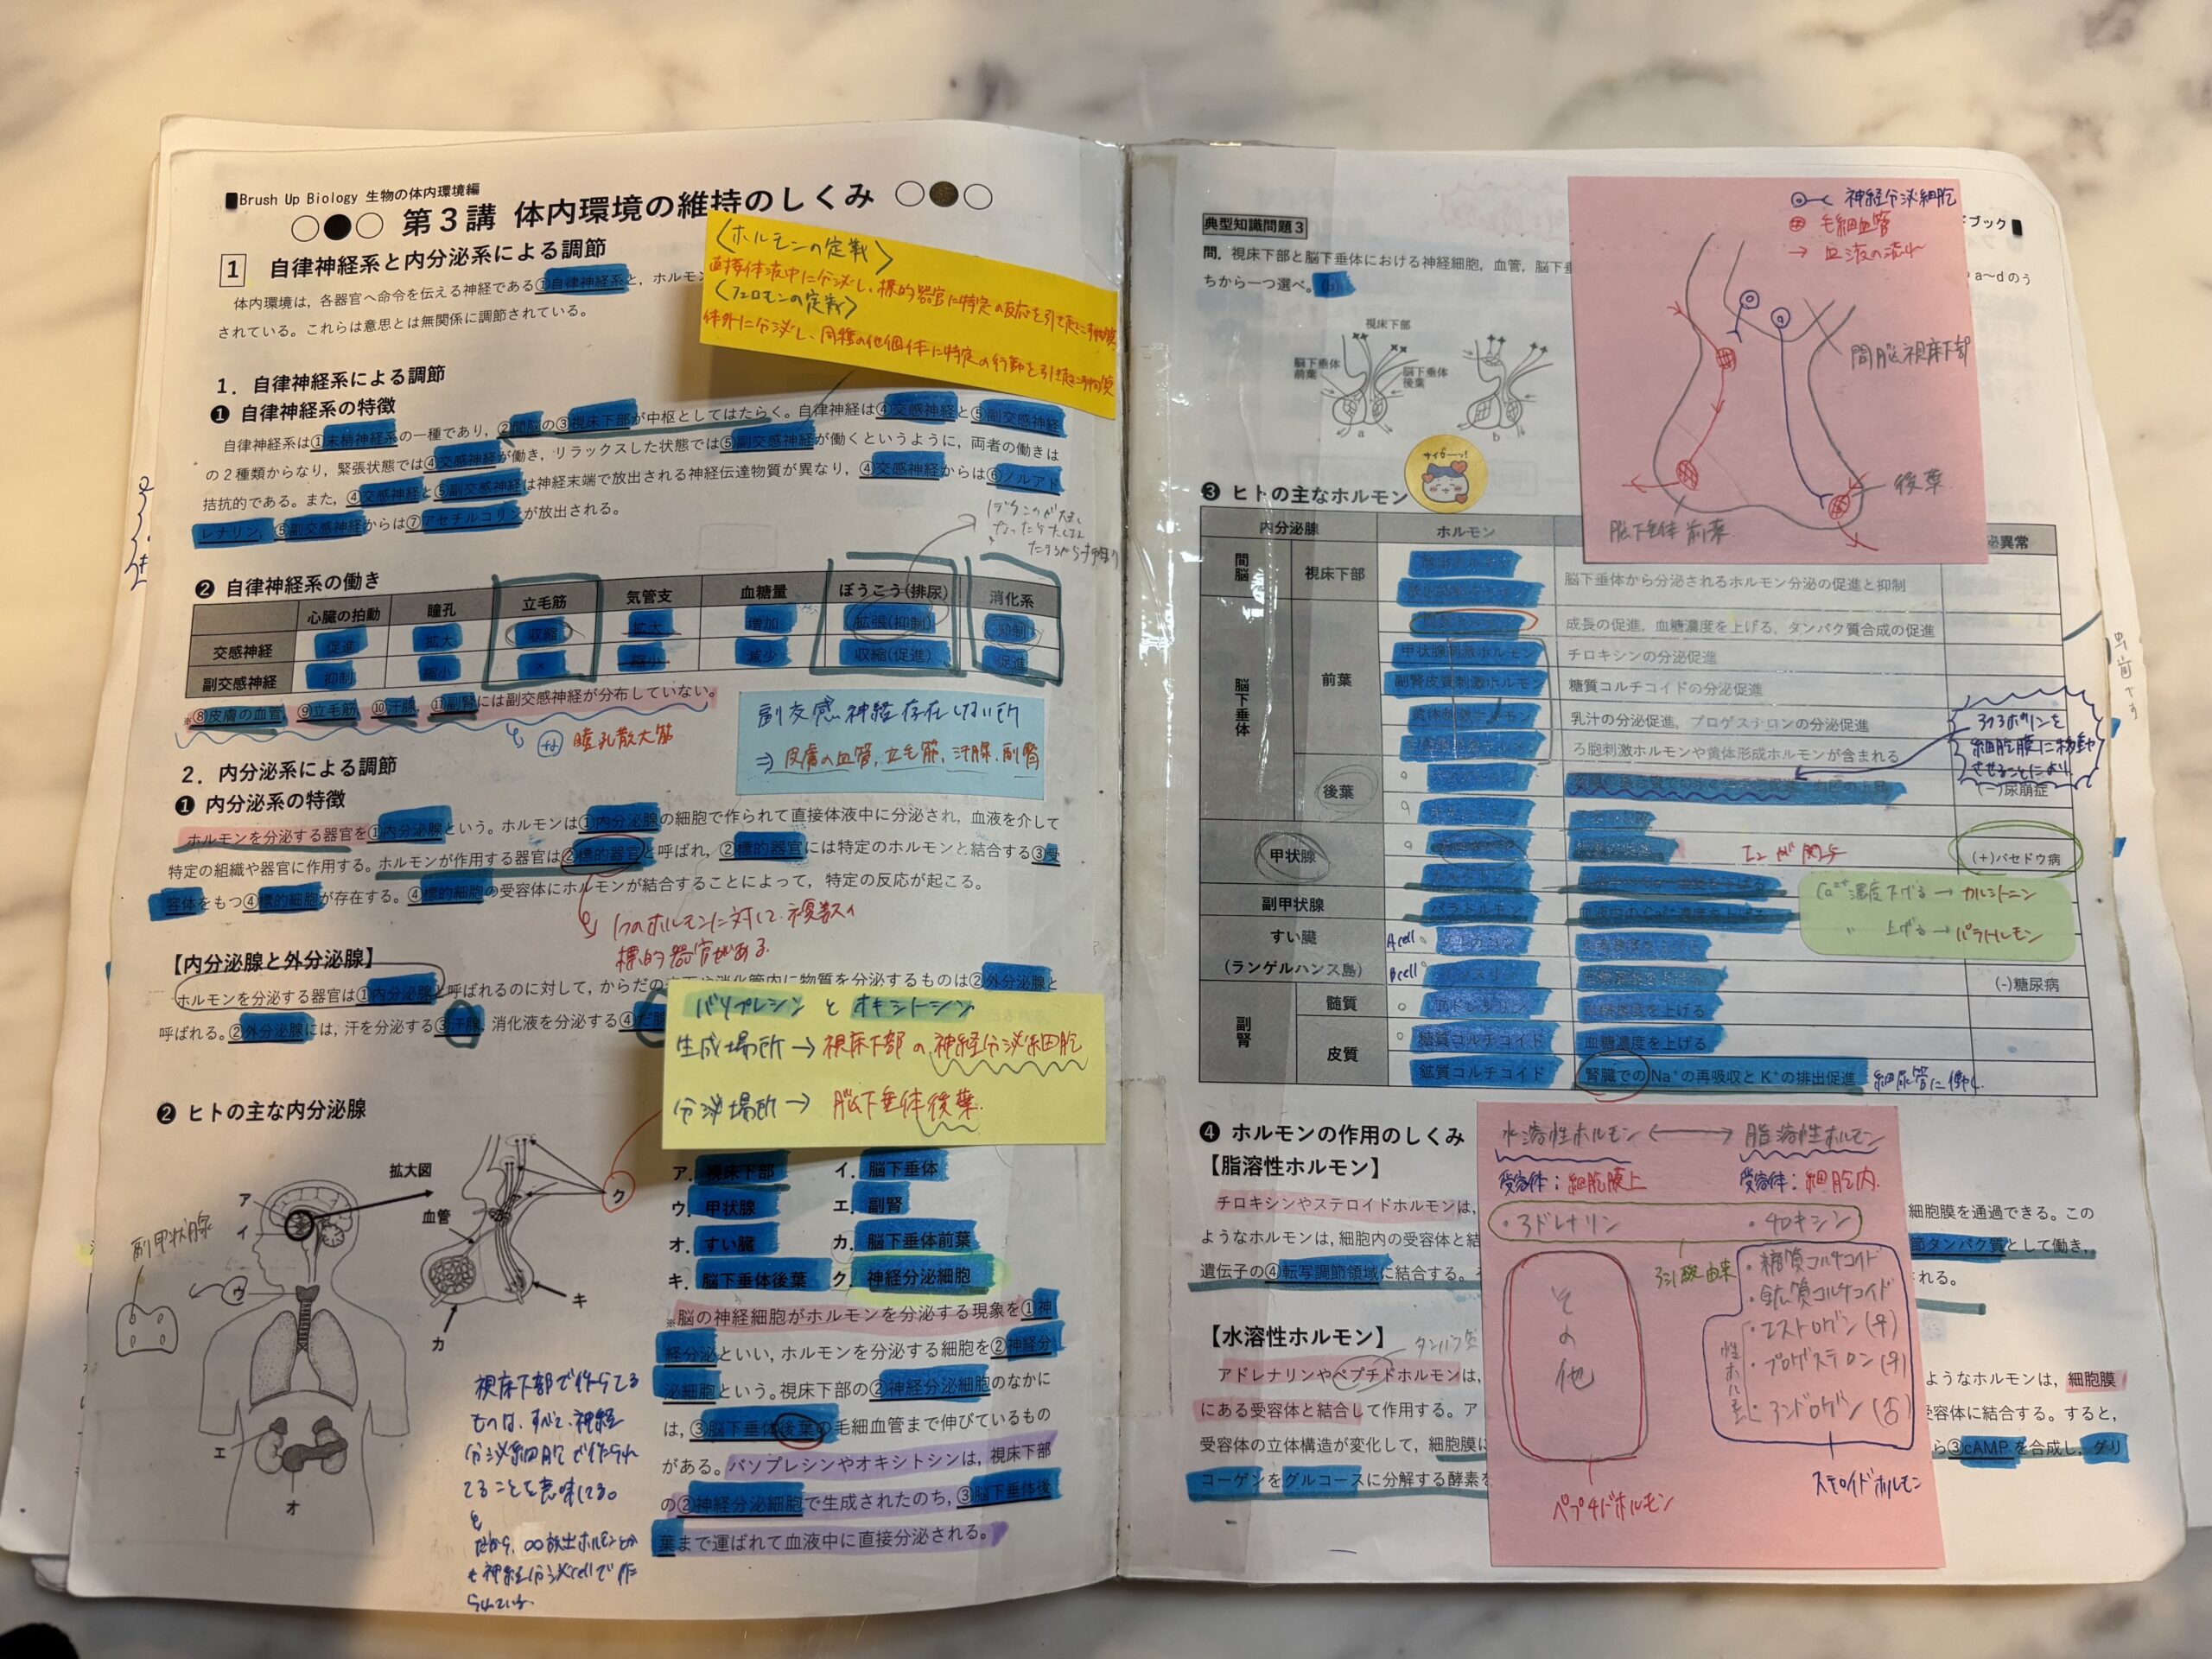 Brush Up Biology 生物の体内環境編
第3講 体内環境の維持のしくみ
1 自律神経系と内分泌系による調節
体内環境は，各器官へ命令を伝える神経である①自律神経系と，ホルモン
されている。これらは意思とは無関係に調節されている。
〈ホルモンの定義〉
直接体液中に分泌し、標的器官に特定の反応を引き起こす物質
〈フェロモンの定義〉
体外に分泌し、同種の他個体に特定の行動を引き起こす物質
1．自律神経系による調節
❶ 自律神経系の特徴
自律神経系は①末梢神経系の一種であり，②間脳の③視床下部が中枢としてはたらく。自律神経は④交感神経と⑤副交感神経
の2種類からなり，緊張状態では④交感神経が働き，リラックスした状態では⑤副交感神経が働くというように，両者の働きは
拮抗的である。また，④交感神経と⑤副交感神経は神経末端で放出される神経伝達物質が異なり，④交感神経からは⑥ノルアド
レナリン，⑤副交感神経からは⑦アセチルコリンが放出される。
❷ 自律神経系の働き
心臓の拍動 瞳孔 立毛筋 気管支 血糖量 ぼうこう(排尿) 消化系
交感神経 促進 拡大 収縮 拡大 増加 拡張(抑制) 抑制
副交感神経 抑制 縮小 × 縮小 減少 収縮(促進) 促進
※⑧皮膚の血管，⑨立毛筋，⑩汗腺，⑪副腎には副交感神経が分布していない。
瞳孔散大筋
副交感神経存在しない所
⇒ 皮膚の血管、立毛筋、汗腺、副腎
2．内分泌系による調節
❶ 内分泌系の特徴
ホルモンを分泌する器官を①内分泌腺という。ホルモンは①内分泌腺の細胞で作られて直接体液中に分泌され，血液を介して
特定の組織や器官に作用する。ホルモンが作用する器官は②標的器官と呼ばれ，②標的器官には特定のホルモンと結合する③受
容体をもつ④標的細胞が存在する。④標的細胞の受容体にホルモンが結合することによって，特定の反応が起こる。
1つのホルモンに対して複数の
標的器官がある
【内分泌腺と外分泌腺】
ホルモンを分泌する器官は①内分泌腺と呼ばれるのに対して，からだの表面や消化管内に物質を分泌するものは②外分泌腺と
呼ばれる。②外分泌腺には，汗を分泌する③汗腺，消化液を分泌する④だ腺
バソプレシン と オキシトシン
生成場所 → 視床下部の神経分泌細胞
分泌場所 → 脳下垂体後葉
❷ ヒトの主な内分泌腺
拡大図
血管
ア
イ
ウ
エ
オ
カ
キ
ク
副甲状腺
ア．視床下部 イ．脳下垂体
ウ．甲状腺 エ．副腎
オ．すい臓 カ．脳下垂体前葉
キ．脳下垂体後葉 ク．神経分泌細胞
※脳の神経細胞がホルモンを分泌する現象を①神
経分泌といい，ホルモンを分泌する細胞を②神経分
泌細胞という。視床下部の②神経分泌細胞のなかに
は，③脳下垂体後葉の毛細血管まで伸びているもの
がある。バソプレシンやオキシトシンは，視床下部
の②神経分泌細胞で生成されたのち，③脳下垂体後
葉まで運ばれて血液中に直接分泌される。
視床下部で作ってる
ものは、すべて、神経
分泌細胞で作られ
てることを意味してる。
だから、○○放出ホルモンとか
も神経分泌cellで作
られている
典型知識問題3
問．視床下部と脳下垂体における神経細胞，血管，脳下垂
ちから一つ選べ。(b)
ブック
a〜dのう
視床下部
脳下垂体前葉
脳下垂体後葉
a
b
神経分泌細胞
毛細血管
→ 血液の流れ
間脳視床下部
後葉
脳下垂体前葉
サイコーッ!
❸ ヒトの主なホルモン
内分泌腺 ホルモン
異常
間脳 視床下部
脳下垂体から分泌されるホルモン分泌の促進と抑制
脳下垂体 前葉
成長の促進，血糖濃度を上げる，タンパク質合成の促進
甲状腺刺激ホルモン チロキシンの分泌促進
副腎皮質刺激ホルモン 糖質コルチコイドの分泌促進
乳汁の分泌促進，プロゲステロンの分泌促進
ろ胞刺激ホルモンや黄体形成ホルモンが含まれる
後葉
(−)尿崩症
アクアポリンを
細胞膜に移動
させることにより
甲状腺
I₂が関与
(+)バセドウ病
副甲状腺 パラトルモン
Ca²⁺濃度下げる → カルシトニン
〃 上げる → パラトルモン
すい臓 A cell
(ランゲルハンス島) B cell
(-)糖尿病
副腎 髄質 血糖濃度を上げる
皮質 糖質コルチコイド 血糖濃度を上げる
鉱質コルチコイド 腎臓でのNa⁺の再吸収とK⁺の排出促進
細尿管に働く
❹ ホルモンの作用のしくみ
【脂溶性ホルモン】
チロキシンやステロイドホルモンは，
細胞膜を通過できる。この
ようなホルモンは，細胞内の受容体と結
節タンパク質として働き，
遺伝子の④転写調節領域に結合する。
れる。
【水溶性ホルモン】
アドレナリンやペプチドホルモンは，
ようなホルモンは，細胞膜
にある受容体と結合して作用する。ア
受容体に結合する。すると，
受容体の立体構造が変化して，細胞膜に
ら③cAMPを合成し，グリ
コーゲンをグルコースに分解する酵素を
水溶性ホルモン ⟷ 脂溶性ホルモン
受容体：細胞膜上 受容体：細胞内
・アドレナリン ・チロキシン
アミノ酸由来
・糖質コルチコイド
・鉱質コルチコイド
・エストロゲン(♀)
・プロゲステロン(♀)
・アンドロゲン(♂)
性ホルモン
その他
ペプチドホルモン
ステロイドホルモン